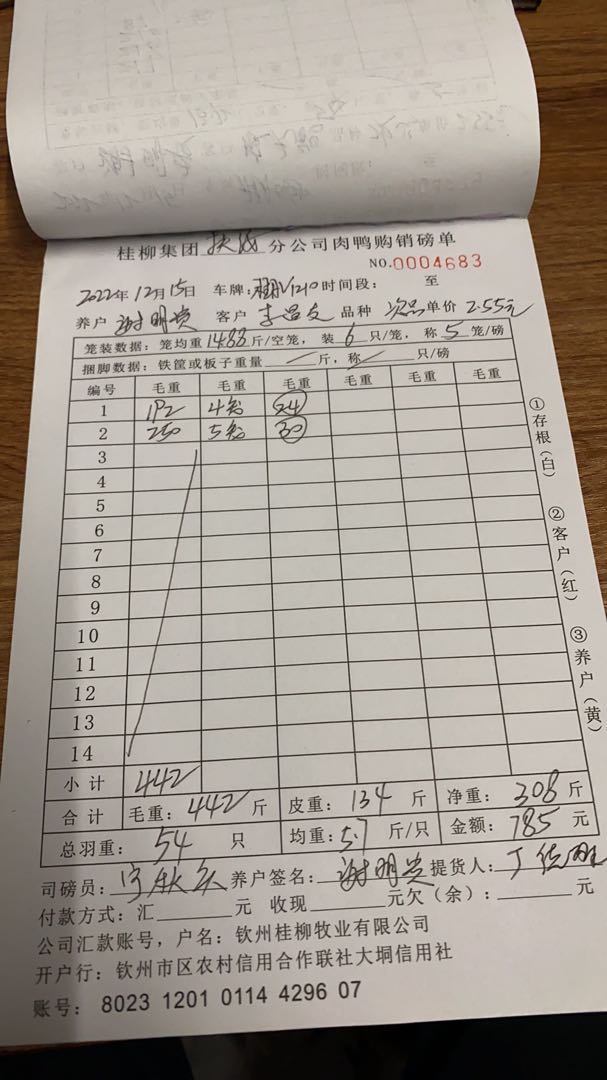 桂柳集团 分公司肉鸭购销磅单
NO.0004683
2022年12月15日 车牌: 1210 时间段: 至
养户 谢明贵 客户 李昌友 品种 次品 单价 2.55元
笼装数据: 笼均重 14.88 斤/空笼, 装 6 只/笼, 称 5 笼/磅
捆脚数据: 铁筐或板子重量 斤, 称 只/磅
编号 毛重 毛重 毛重 毛重 毛重 毛重
1 192 4 24
2 250 5 30
3
4
5
6
7
8
9
10
11
12
13
14
小计 442
合计 毛重: 442 斤 皮重: 134 斤 净重: 308 斤
总羽重: 54 只 均重: 5.7 斤/只 金额: 785 元
司磅员: 养户签名: 谢明贵 提货人:
付款方式: 汇 元 收现 元欠(余): 元
公司汇款账号, 户名: 钦州桂柳牧业有限公司
开户行: 钦州市区农村信用合作联社大垌信用社
账号: 8023 1201 0114 4296 07
①存根(白)
②客户(红)
③养户(黄)